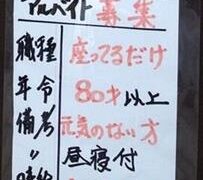 アルバイト募集
職種 座ってるだけ
年令 80才以上
備考 元気のない方
〃 昼寝付